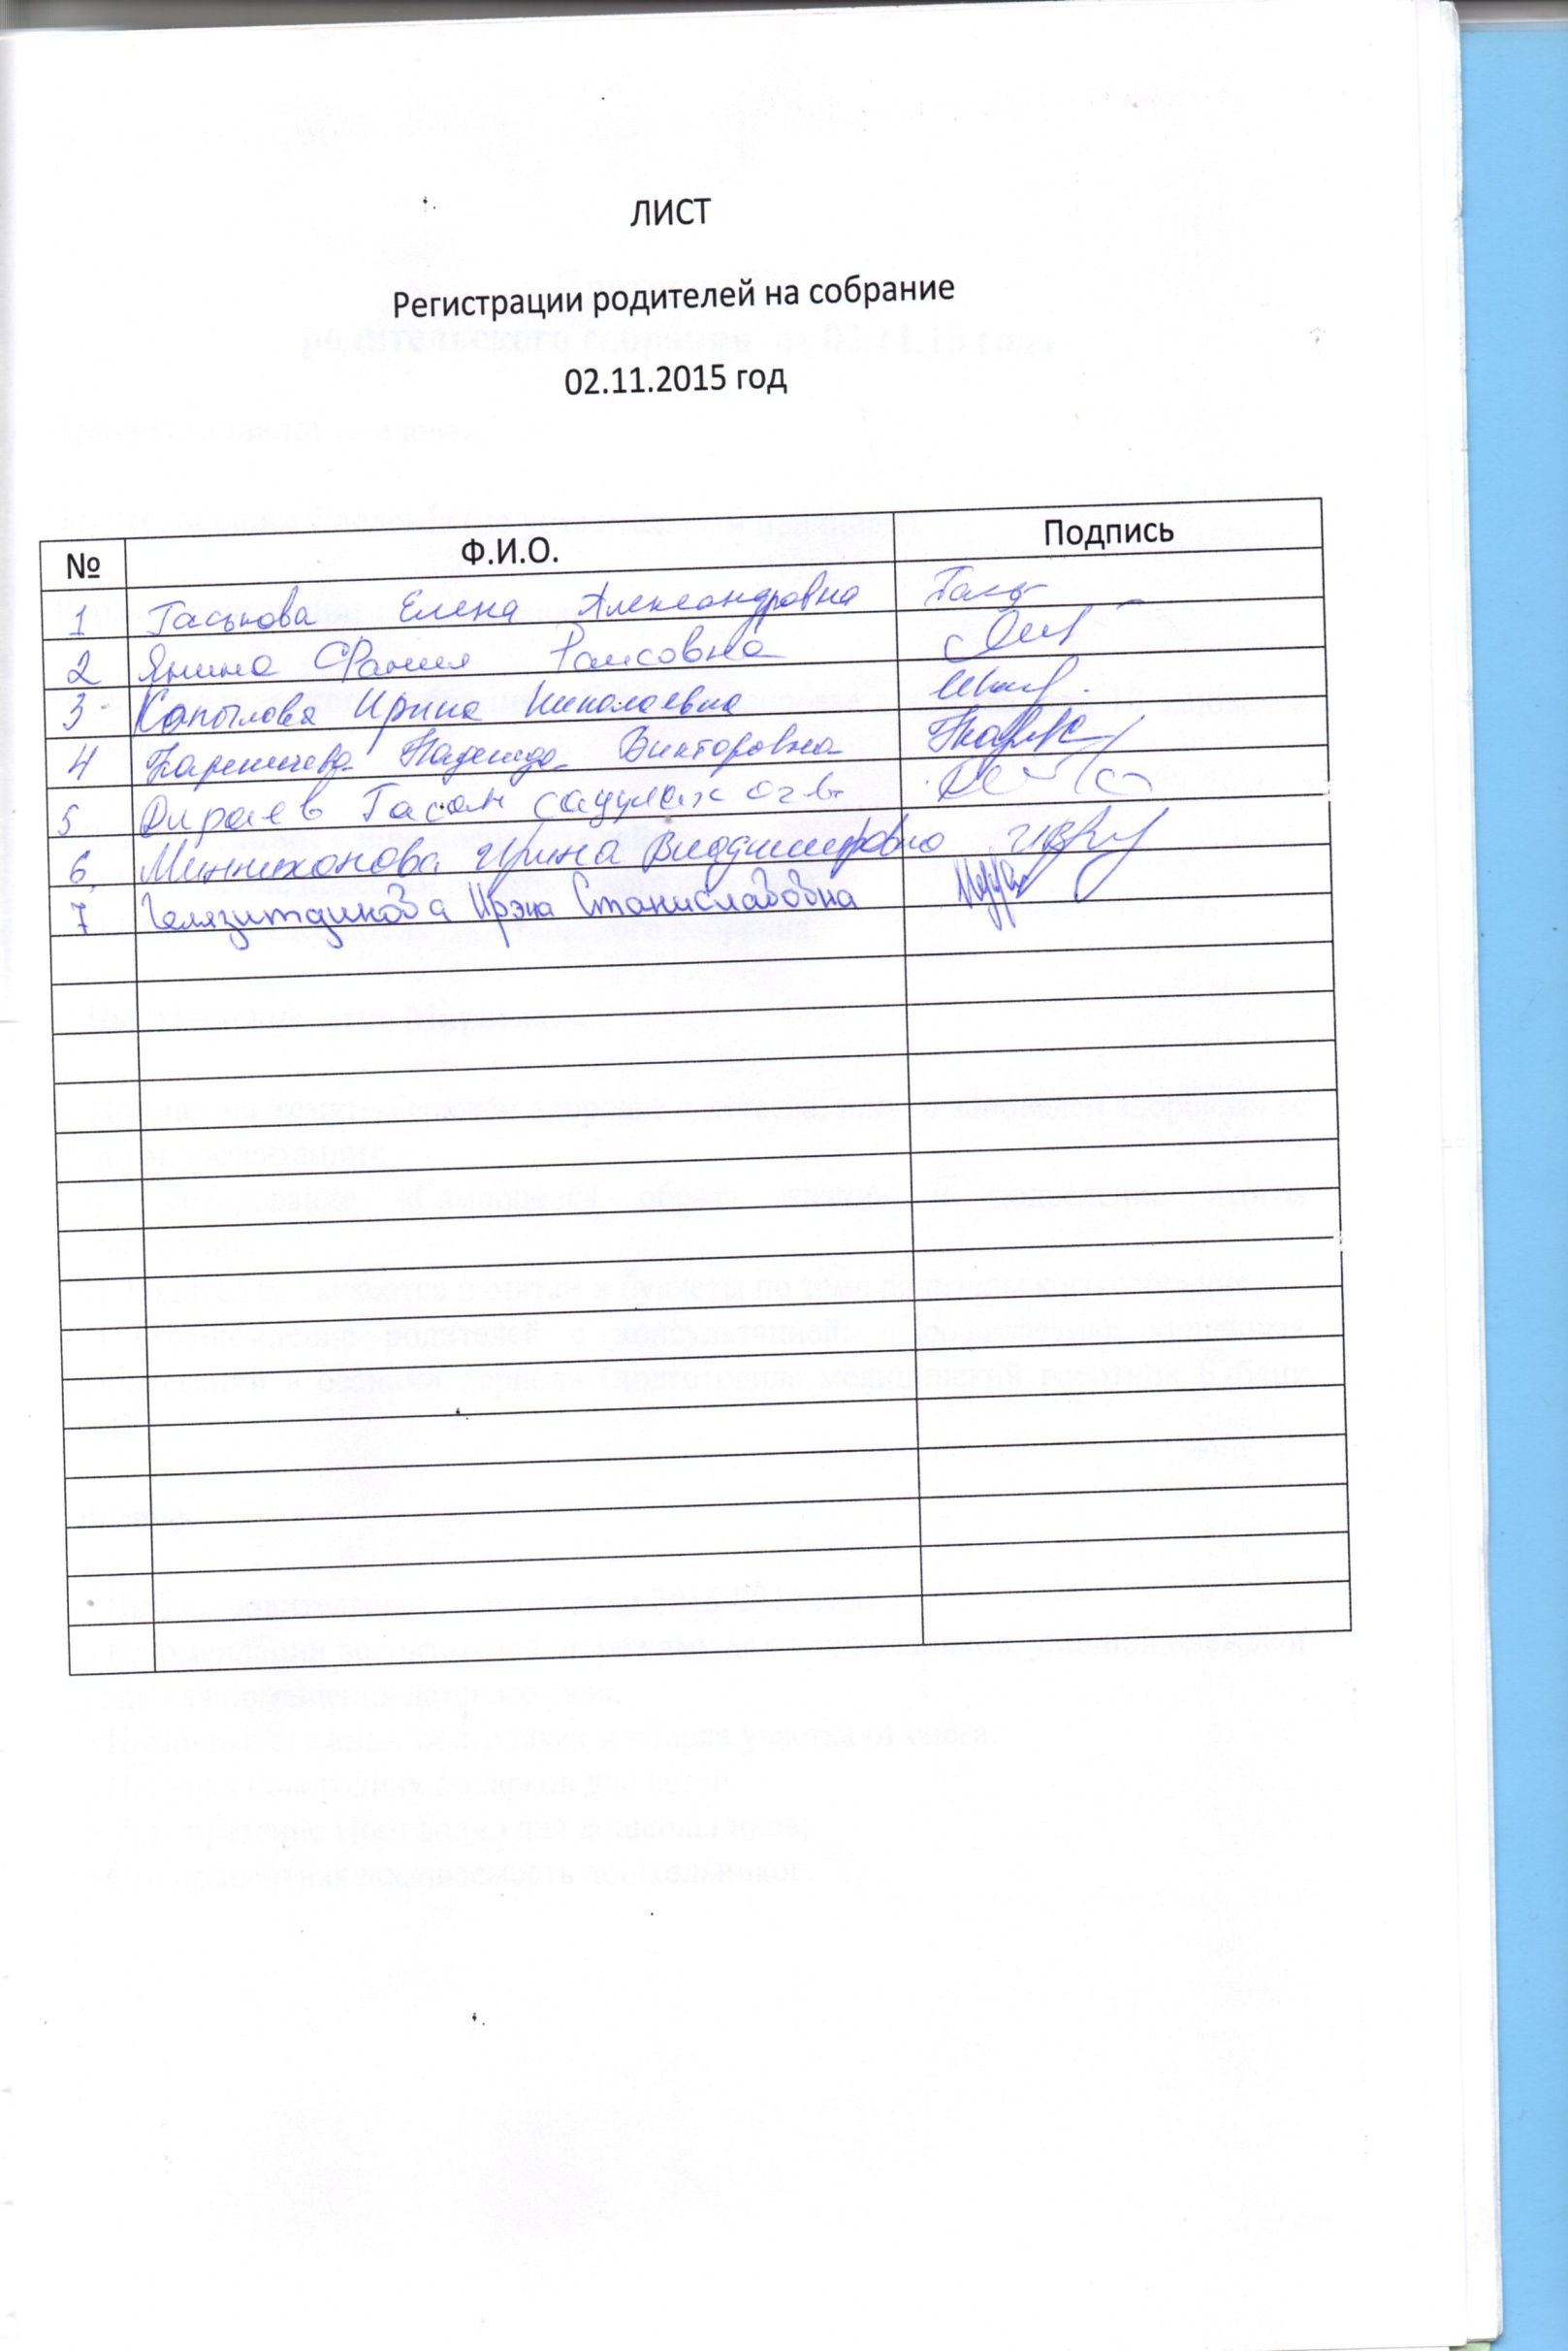 ЛИСТ
Регистрации родителей на собрание
02.11.2015 год
№ Ф.И.О. Подпись
1 Гаськова Елена Александровна
2 Янина Фания Раисовна
3 Копылова Ирина Николаевна
4 Надежда Викторовна
5 Гасан
6. Минниханова Ирина Владимировна
7 Ирэна Станиславовна